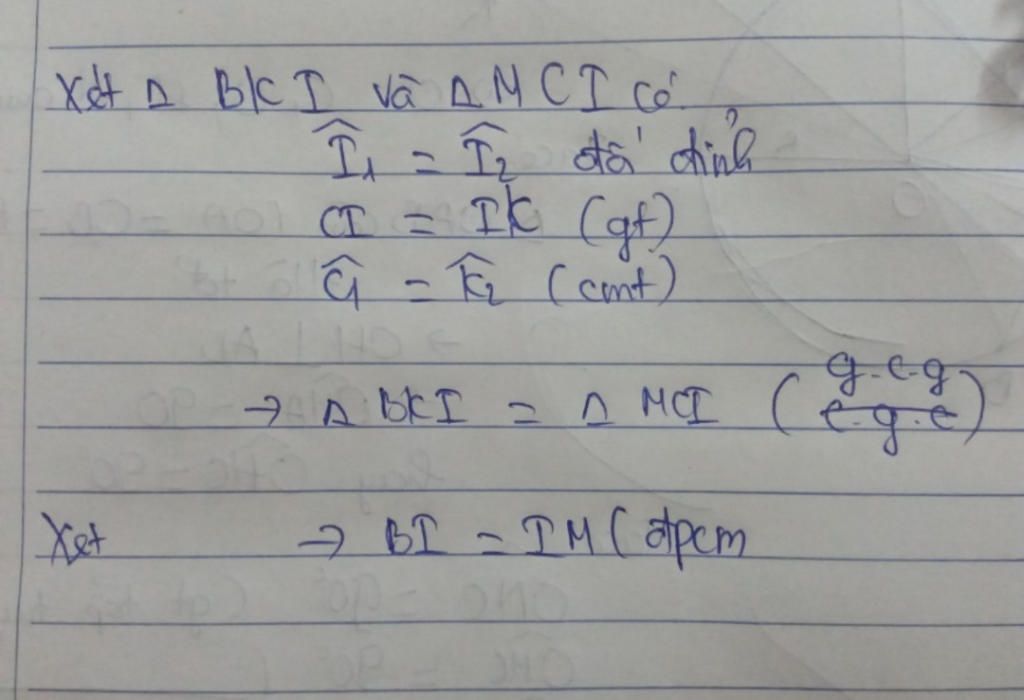 Xét Δ BKI và Δ MCI có
Î₁ = Î₂ đối đỉnh
CI = IK (gt)
Ĉ₁ = K̂₂ (cmt)
g.c.g
→ Δ BKI = Δ MCI (c.g.c)
Xet → BI = IM (đpcm